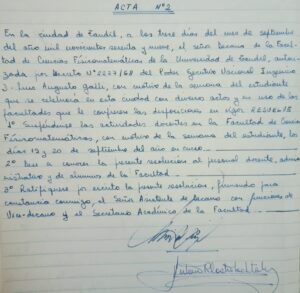 ACTA Nº2
En la ciudad de Tandil, a los trece días del mes de septiembre
del año mil novecientos sesenta y nueve, el señor Decano de la Facul-
tad de Ciencias Fisicomatemáticas de la Universidad de Tandil, autori-
zada por Decreto Nº2227/68 del Poder Ejecutivo Nacional Ingeniero
J. Luis Augusto Galli, con motivo de la semana del estudiante
que se celebrará en esta ciudad con diversos actos y en uso de las
facultades que le confieren las disposiciones en vigor RESUELVE
1º Suspéndense las actividades docentes en la Facultad de Ciencias
Fisicomatemáticas, con motivo de la semana del estudiante, los
días 19 y 20 de septiembre del año en curso.
2º Dese a conocer la presente resolución al personal docente, admi-
nistrativo y de alumnos de la Facultad.
3º Ratifíquese por escrito la presente resolución, firmando para
constancia conmigo, el Señor Asistente de Decano con funciones de
Vice-decano y el Secretario Académico de la Facultad.